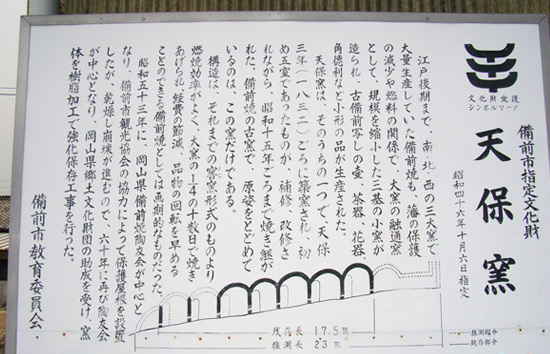 文化財愛護
シンボルマーク
備前市指定文化財
天保窯
昭和四十六年十月六日指定
江戸後期まで、南、北、西の三大窯で
大量生産していた備前焼も、藩の保護
の減少や燃料の関係で、大窯の融通窯
として、規模を縮小した三基の小窯が
造られ、古備前写しの壷、茶器、花器
角徳利など小形の品が生産された。
天保窯は、そのうちの一つで、天保
三年(一八三二)ごろに築窯され、初
め五室であったものが、補修、改修さ
れながら、昭和十五年ごろまで焼き継が
れた。備前焼の古窯で、原姿をとどめて
いるのは、この窯だけである。
構造は、それまでの窖窯形式のものより
燃焼効率がよく、大窯の1/4の十数日で焼き
あげられ、経費の節減、品物の回転を早める
ことのできる備前焼としては画期的なものだった。
昭和五十三年に、岡山県備前焼陶友会が中心と
なり、備前市観光協会の協力によって保護屋根を設置
したが、乾燥し崩壊が進むので、六十年に再び陶友会
が中心となり、岡山県郷土文化財団の助成を受け、窯
体を樹脂加工で強化保存工事を行った。
備前市教育委員会.
残存長 17.5m
推測長 23m
推測部分
残存部分